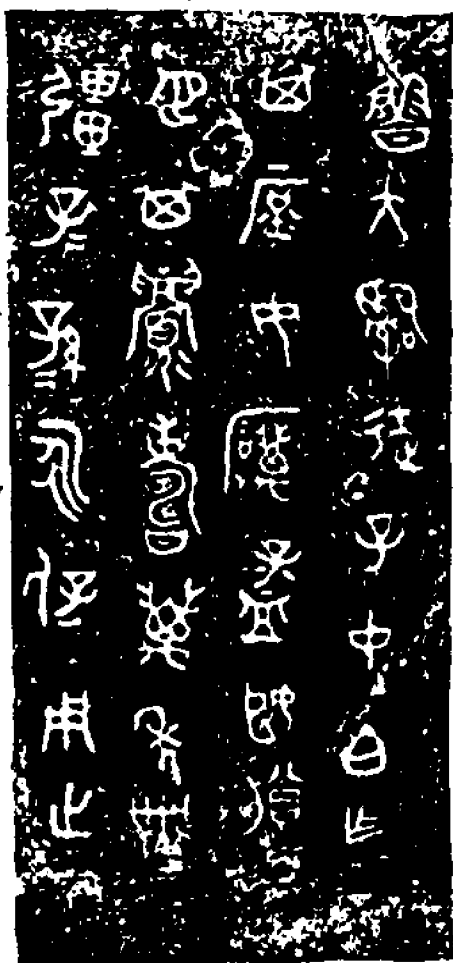 魯大𤔲徒子中白乍
其庶女厲孟姬媵
它其眉壽萬年無
疆子＝孫＝永保用之